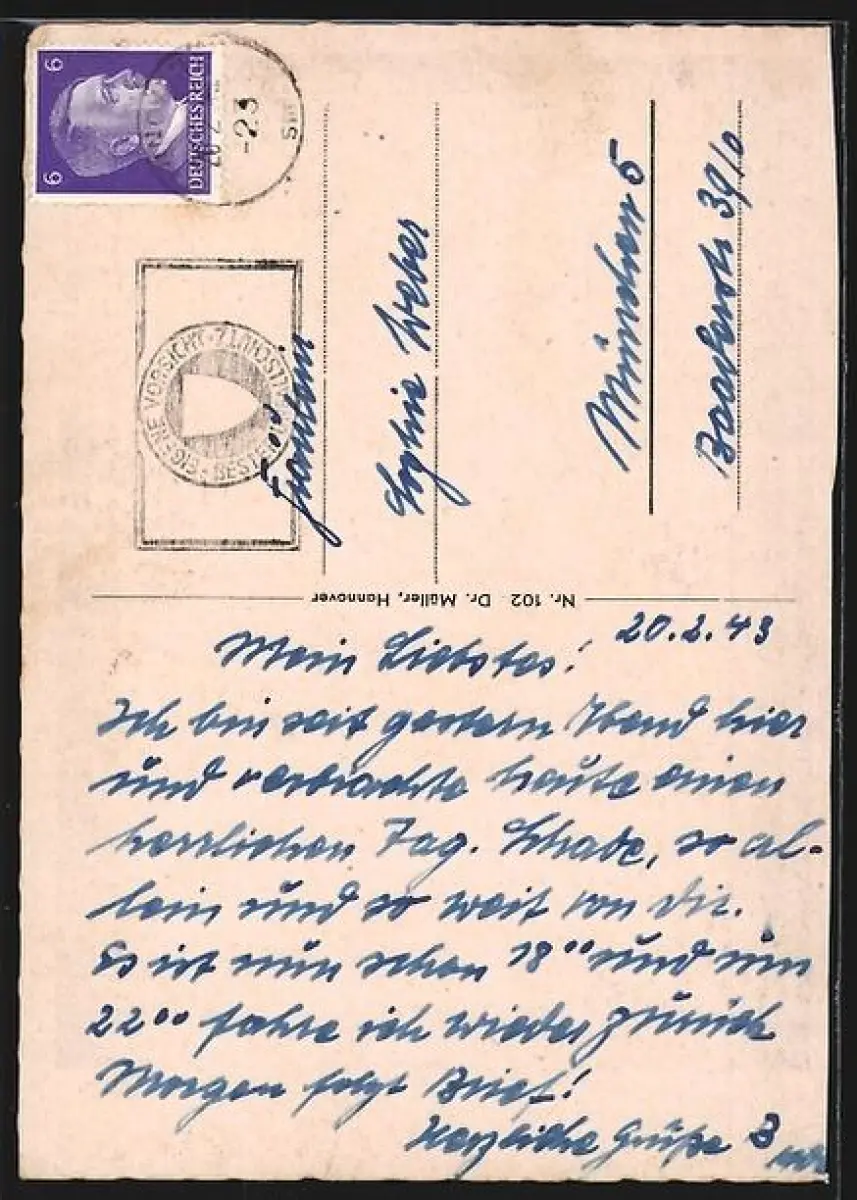 6
6
DEUTSCHES REICH
-2.3
EIGENE VORSICHT · BESTER
Fräulein
Sophie Weber
München 5
39/0
Nr. 102 · Dr. Müller, Hannover
20.2.43
Mein Liebstes!
Ich bin seit gestern Abend hier
und verbrachte heute einen
herrlichen Tag. Schade, so al-
lein und so weit von Dir.
Es ist nun schon 18°° und um
22°° fahre ich wieder zurück
Morgen folgt Brief!
Herzliche Grüße